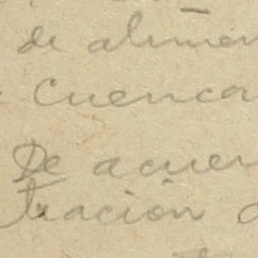 de alimen
Cuenca
De acuer
tración